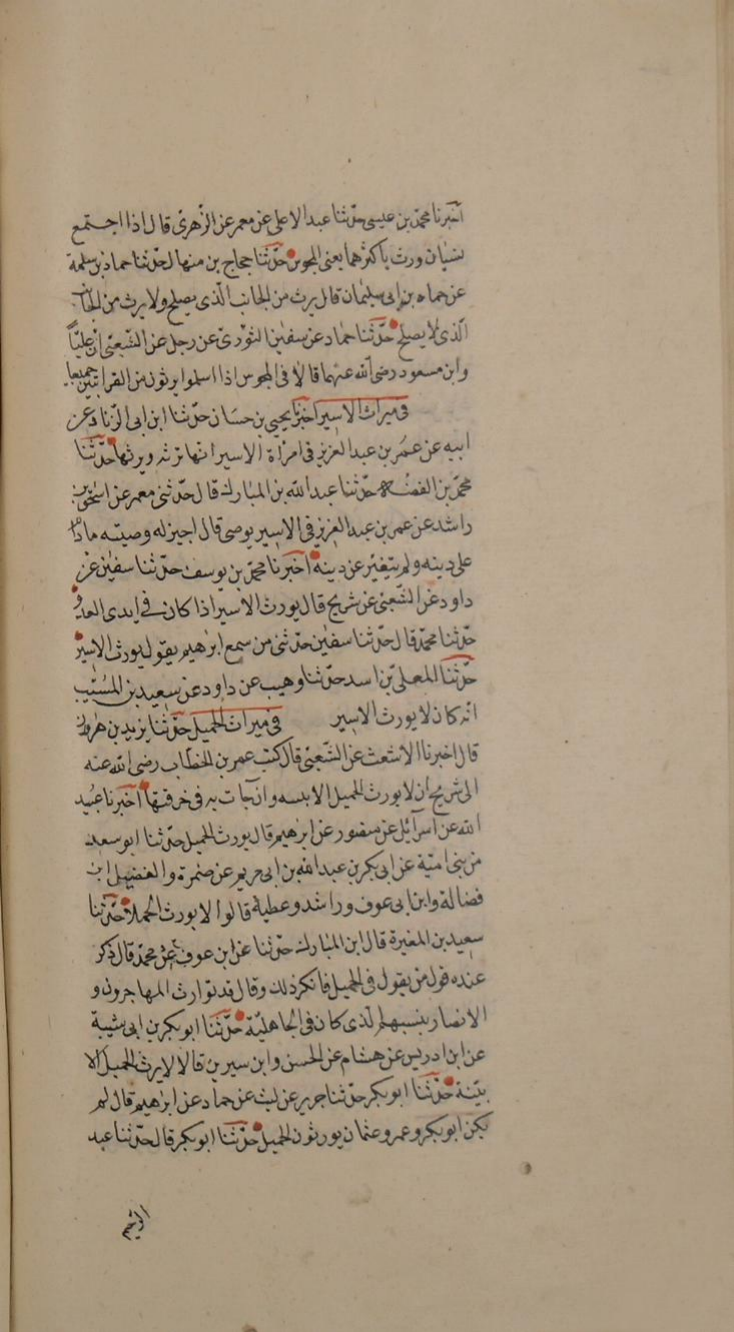 اخبرنا محمد بن عيسى حدثنا عبد الاعلى عن معمر عن الزهرى قال اذا اجتمع
نسبان ورث باكبرهما يعنى المجوس حدثنا حجاج بن منهال حدثنا حماد بن سلمة
عن حماد بن ابى سليمان قال يرث من الجانب الذى يصلح ولا يرث من الجانب
الذى لا يصلح حدثنا حماد عن سفين الثورى عن رجل عن الشعبى ان عليا
وابن مسعود رضى الله عنهما قالا فى المجوس اذا اسلموا يرثون من القرابتين جميعا
فى ميراث الاسير اخبرنا يحيى بن حسان حدثنا ابن ابى الزناد عن
ابيه عن عمر بن عبد العزيز فى امراة الاسير انها ترثه ويرثها حدثنا
محمد بن الفضل حدثنا عبد الله بن المبارك قال حدثنى معمر عن اسحق بن
راشد عن عمر بن عبد العزيز فى الاسير يوصى قال اجيز له وصيته ما دام
على دينه ولم يتغير عن دينه اخبرنا محمد بن يوسف حدثنا سفين عن
داود عن الشعبى عن شريح قال يورث الاسير اذا كان فى ايدى العدو
حدثنا محمد قال حدثنا سفين حدثنى من سمع ابرهيم يقول يورث الاسير
حدثنا المعلى بن اسد حدثنا وهيب عن داود عن سعيد بن المسيب
انه كان لا يورث الاسير فى ميراث الحميل حدثنا يزيد بن هرون
قال اخبرنا الاشعث عن الشعبى قال كتب عمر بن الخطاب رضى الله عنه
الى شريح ان لا يورث الحميل الا ببينة وان جاءت به فى خرقتها اخبرنا عبيد
الله عن اسرآئل عن منصور عن ابرهيم قال يورث الحميل حدثنا ابو سعيد
من بنى امية عن ابى بكر بن عبد الله بن ابى مريم عن ضمرة والفضيل بن
فضالة وابن ابى عوف وراشد وعطية قالوا لا يورث الحملا حدثنا
سعيد بن المغيرة قال ابن المبارك حدثنا عن ابن عون عن محمد قال ذكر
عنده قول من يقول فى الحميل فانكر ذلك وقال قد توارث المهاجرون و
الانصار بنسبهم الذى كان فى الجاهلية حدثنا ابو بكر بن ابى شيبة
عن ابن ادريس عن هشام عن الحسن وابن سيرين قالا لا يرث الحميل الا
بينة حدثنا ابو بكر حدثنا جرير عن ليث عن حماد عن ابرهيم قال لم
يكن ابو بكر وعمر وعثمان يورثون الحميل حدثنا ابو بكر قال حدثنا عبد